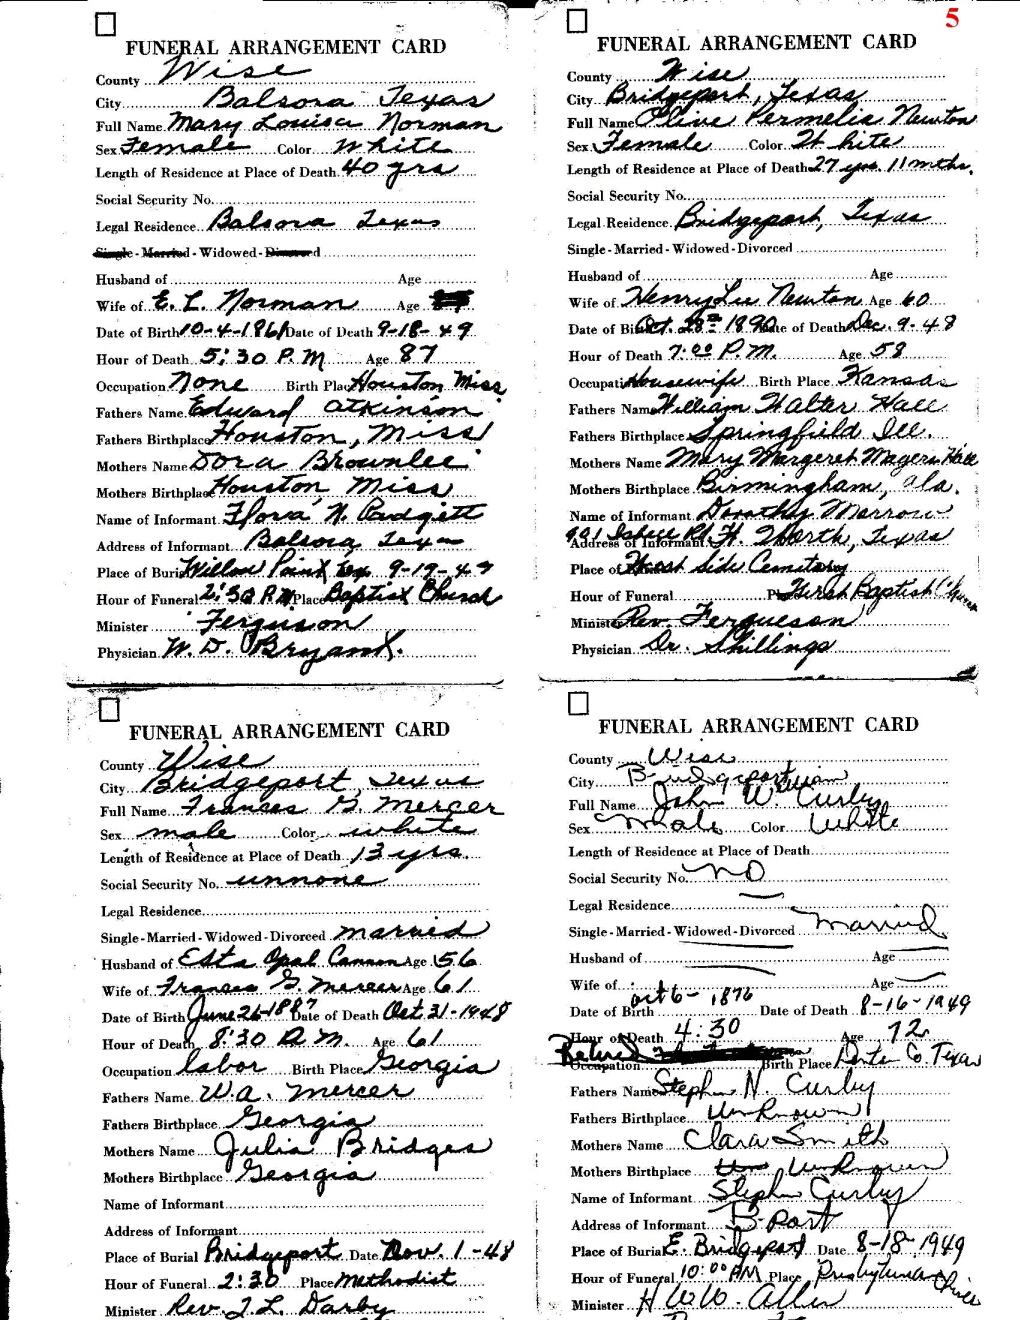 5
FUNERAL ARRANGEMENT CARD
County Wise
City Balsora Texas
Full Name Mary Louisa Norman
Sex Female Color White
Length of Residence at Place of Death 40 yrs
Social Security No.
Legal Residence Balsora Texas
Single - Married - Widowed - Divorced
Husband of Age
Wife of E. L. Norman Age
Date of Birth 10-4-1861 Date of Death 9-18-49
Hour of Death 5:30 P.M Age 87
Occupation None Birth Place Houston Miss
Fathers Name Edward Atkinson
Fathers Birthplace Houston, Miss
Mothers Name Dora Brownlee
Mothers Birthplace Houston Miss
Name of Informant Flora N. Padgett
Address of Informant Balsora Texas
Place of Burial Willow Point Tex 9-19-49
Hour of Funeral 2:30 P.M Place Baptist Church
Minister Ferguson
Physician W. D. Bryant.
FUNERAL ARRANGEMENT CARD
County Wise
City Bridgeport, Texas
Full Name Olive Permelia Newton
Sex Female Color White
Length of Residence at Place of Death 27 yrs. 11 mths.
Social Security No.
Legal Residence Bridgeport, Texas
Single - Married - Widowed - Divorced
Husband of Age
Wife of Henry Lee Newton Age 60
Date of Birth Oct. 28th 1890 Date of Death Dec. 9-48
Hour of Death 7:00 P.M. Age 58
Occupation Housewife Birth Place Kansas
Fathers Name William Walter Hall
Fathers Birthplace Springfield Ill.
Mothers Name Mary Margeret Magers Hall
Mothers Birthplace Birmingham, Ala.
Name of Informant Dorothy Morrow
901 Rd.
Address of Informant Ft. Worth, Texas
Place of West Side Cemetary
Hour of Funeral Place First Baptist Church
Minister Rev. Fergueson
Physician Dr. Shillings
FUNERAL ARRANGEMENT CARD
County Wise
City Bridgeport, Texas
Full Name Frances G. Mercer
Sex male Color white
Length of Residence at Place of Death 13 yrs.
Social Security No. unnone
Legal Residence
Single - Married - Widowed - Divorced married
Husband of Esta Opal Cannon Age 56
Wife of Frances G. Mercer Age 61
Date of Birth June 26-1887 Date of Death Oct 31-1948
Hour of Death 8:30 A.M. Age 61
Occupation labor Birth Place Georgia
Fathers Name W.A. Mercer
Fathers Birthplace Georgia
Mothers Name Julia Bridges
Mothers Birthplace Georgia
Name of Informant
Address of Informant
Place of Burial Bridgeport Date Nov. 1-48
Hour of Funeral 2:30 Place Methodist
Minister Rev. J. L. Darby
FUNERAL ARRANGEMENT CARD
County Wise
City Bridgeport
William
Full Name John W. Curby
Sex Male Color White
Length of Residence at Place of Death
Social Security No. NO
Legal Residence
Single - Married - Widowed - Divorced Married
Husband of Age
Wife of Age
Date of Birth Oct 6-1876 Date of Death 8-16-1949
Hour of Death 4:30 Age 72
Retired
Occupation Birth Place Denton Co. Texas
Fathers Name Stephen N. Curby
Fathers Birthplace Unknown
Mothers Name Clara Smith
Mothers Birthplace Unknown
Name of Informant Stephen Curby
Address of Informant B-port
Place of Burial E. Bridgeport Date 8-18-1949
Hour of Funeral 10:00 AM Place Presbyterian Church
Minister H W.W. Allen